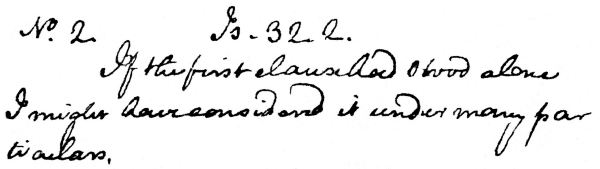 No. 2. Is. 32. 2.
If the first clause had stood alone
I might have considered it under many par
ticulars.